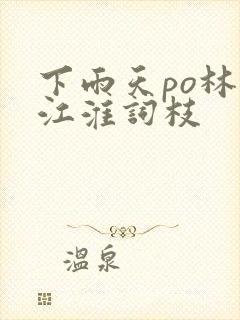 下雨天po林
江淮詞枝
溫泉